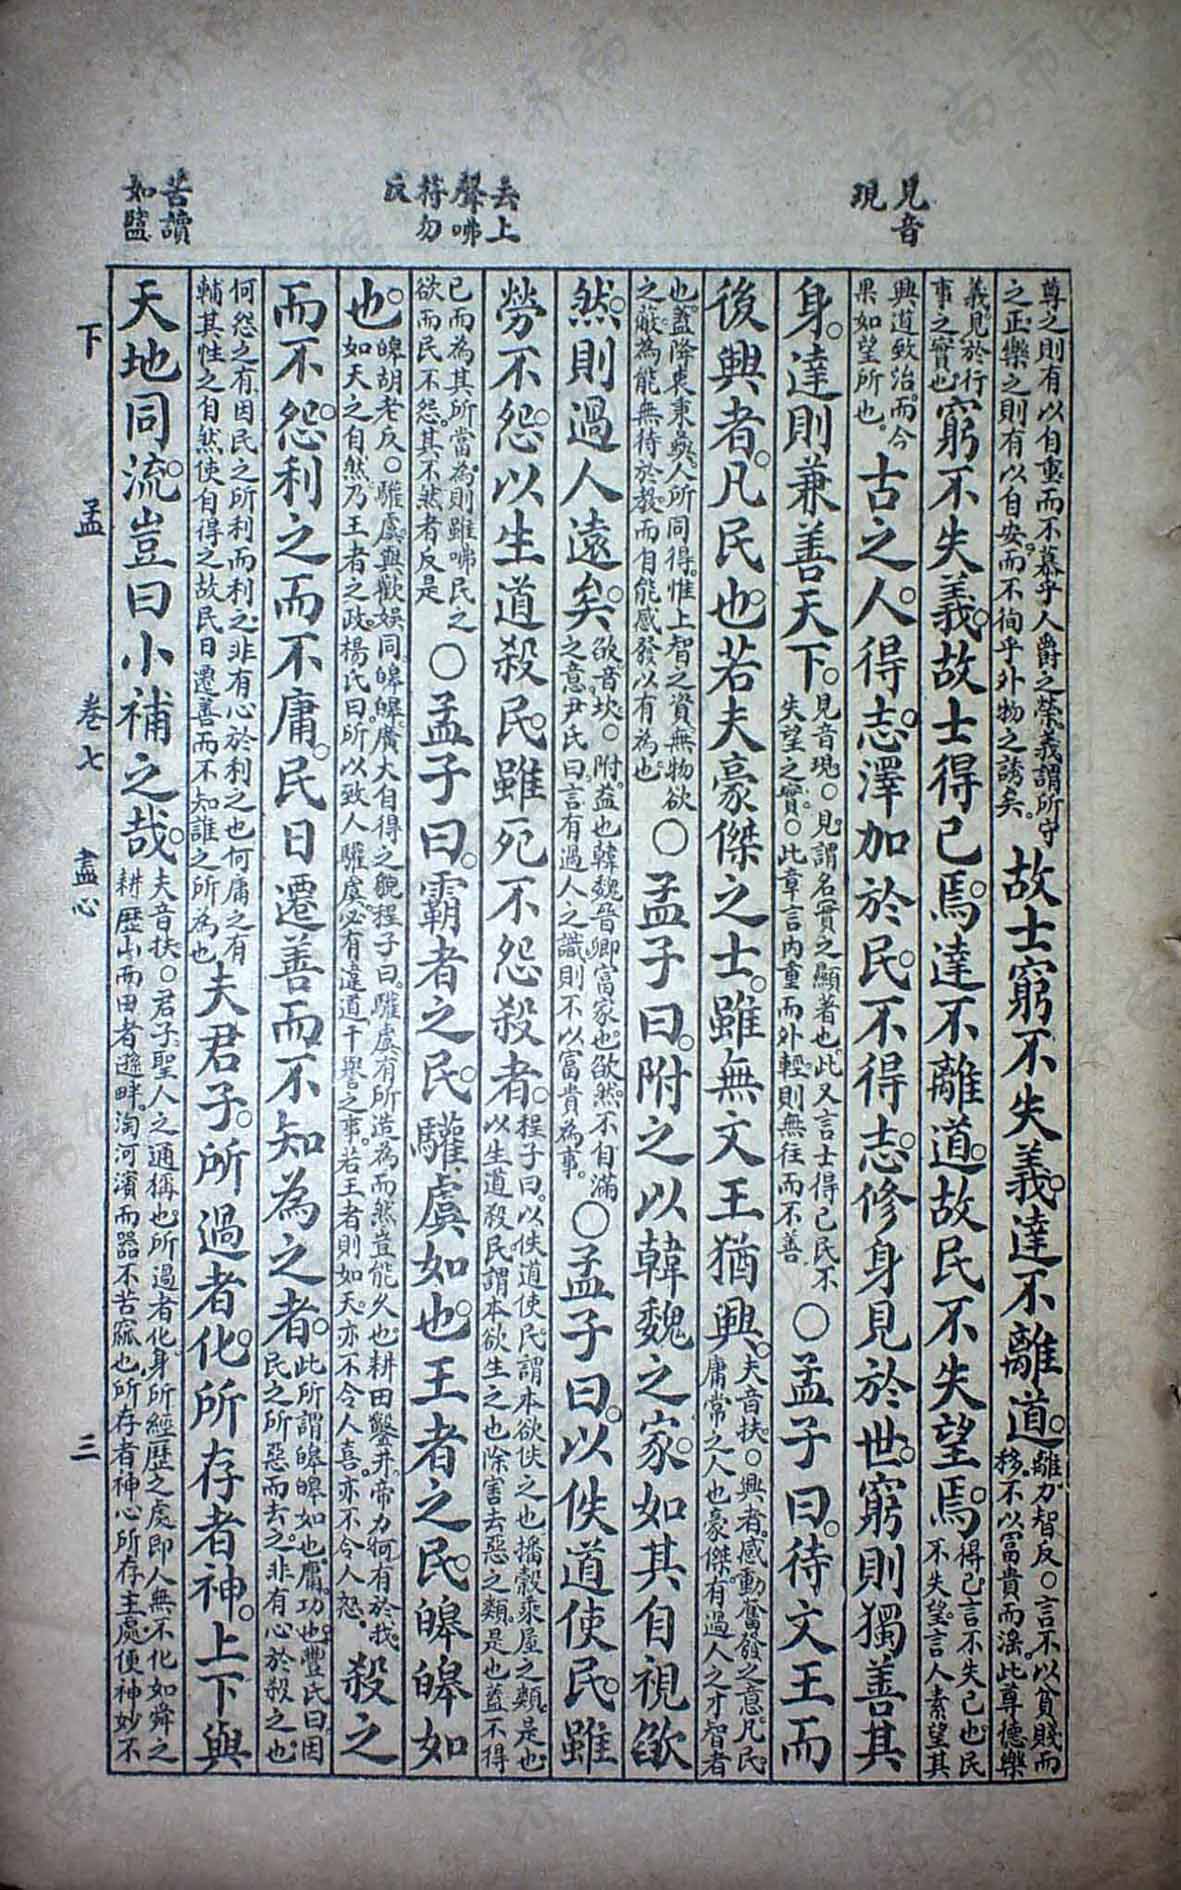 見音
現
去上
聲咈
符勿
反
苦讀
如盬
尊之則有以自重而不慕乎人爵之榮義謂所守
之正樂之則有以自安而不徇乎外物之誘矣。故士窮不失義。達不離道。離力智反。○言不以貧賤而
移不以富貴而淫此尊德樂
義見於行
事之實也。窮不失義。故士得己焉。達不離道。故民不失望焉。得己言不失己也民
不失望言人素望其
興道致治而今
果如望所也。古之人。得志。澤加於民。不得志。修身見於世。窮則獨善其
身。達則兼善天下。見音現。○見謂名實之顯著也此又言士得己民不
失望之實○此章言內重而外輕則無往而不善○孟子曰。待文王而
後興者。凡民也。若夫豪傑之士。雖無文王猶興。夫音扶。○興者感動奮發之意凡民
庸常之人也豪傑有過人之才智者
也蓋降衷秉彝人所同得惟上智之資無物欲
之蔽為能無待於教而自能感發以有為也○孟子曰。附之以韓魏之家。如其自視欿
然。則過人遠矣。欿音坎。○附益也韓魏晉卿富家也欿然不自滿
之意尹氏曰言有過人之識則不以富貴為事。○孟子曰。以佚道使民。雖
勞不怨。以生道殺民。雖死不怨殺者。程子曰。以佚道使民謂本欲佚之也播穀乘屋之類是也
以生道殺民謂本欲生之也除害去惡之類是也蓋不得
已而為其所當為則雖咈民之
欲而民不怨其不然者反是○孟子曰。霸者之民。驩虞如也。王者之民。皞皞如
也。皞胡老反。○驩虞與歡娛同皞皞廣大自得之貌程子曰驩虞有所造為而然豈能久也耕田鑿井帝力何有於我
如天之自然乃王者之政楊氏曰所以致人驩虞必有違道干譽之事若王者則如天亦不令人喜亦不令人怨。殺之
而不怨。利之而不庸。民日遷善而不知為之者。此所謂皞皞如也庸功也豐氏曰因
民之所惡而去之非有心於殺之也
何怨之有因民之所利而利之非有心於利之也何庸之有
輔其性之自然使自得之故民日遷善而不知誰之所為也夫君子。所過者化。所存者神。上下與
天地同流。豈曰小補之哉。夫音扶。○君子聖人之通稱也所過者化身所經歷之處即人無不化如舜之
耕歷山而田者遜畔陶河濱而器不苦窳也所存者神心所存主處便神妙不
下 孟 卷七 盡心 三